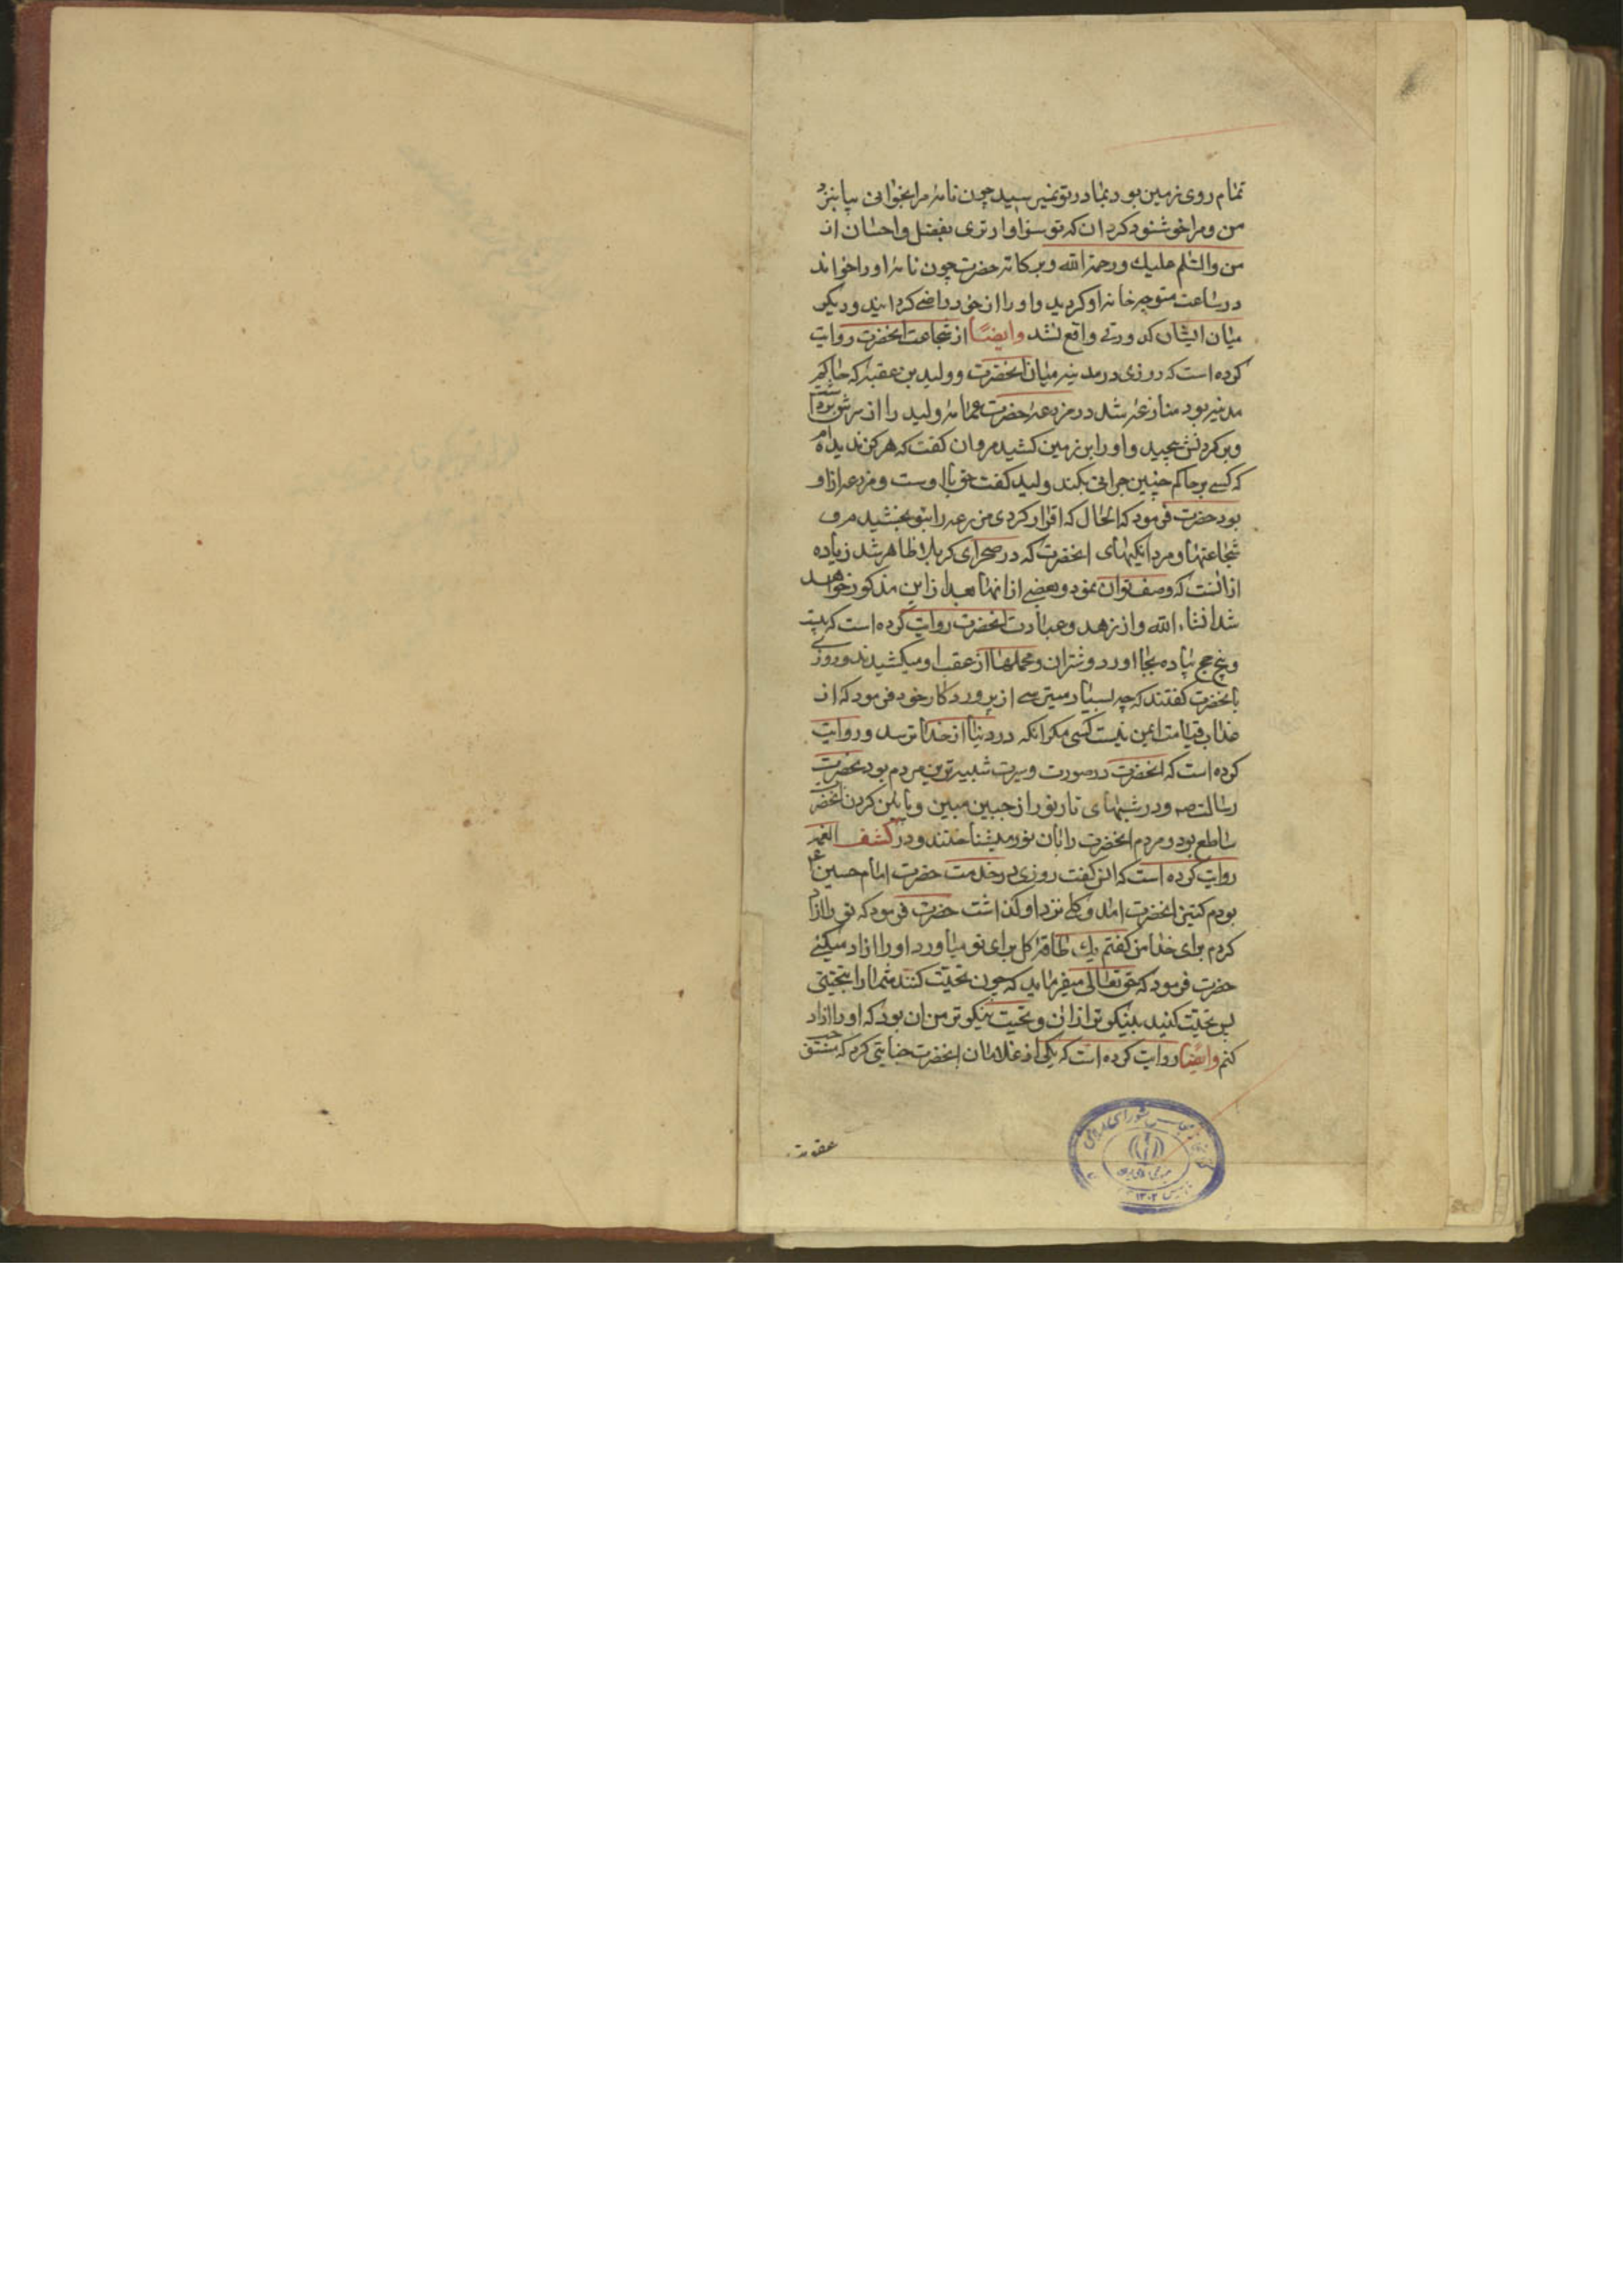 تمام روی زمین بود بمادر تو نمیرسید چون نامهٔ مرا بخوانی بیا بنزد
من و مرا خوشنود کردان که تو سزاوارتری بفضل و احسان از
من والسّلم علیك ورحمة الله وبرکاته حضرت چون نامهٔ او را خواند
در ساعت متوجه خانهٔ او کردید و او را از خود راضی کردانید و دیکر
میان ایشان کدورتی واقع نشد وایضًا از شجاعت انحضرت روایت
کرده است که روزی در مدینه میان انحضرت و ولید بن عقبه که حاکم
مدینه بود منازعه شد در مزرعهٔ حضرت عمامهٔ ولید را از سرش برداشت
وبر کردنش پیچید و او را بر زمین کشید مروان کفت که هرکز ندیده‌ام
که کسی بر حاکم چنین جراتی بکند ولید کفت حق با اوست و مزرعه از او
بود حضرت فرمود که الحال که اقرار کردی مزرعه را بتو بخشیدم و
شجاعتها و مردانکیهای انحضرت که در صحرای کربلا ظاهر شد زیاده
از انست که وصف توان نمود و بعضی از انها بعد از این مذکور خواهد
شد انشاء الله و از زهد و عبادت انحضرت روایت کرده است که بیست
و پنج حج پیاده بجا اورد و شتران و محملها از عقب او میکشیدند و روزی
بانحضرت کفتند که چه بسیار میترسی از پروردکار خود فرمود که از
عذاب قیامت ایمن نیست کسی مکر انکه در دنیا از خدا ترسد و روایت
کرده است که انحضرت در صورت و سیرت شبیه‌ترین مردم بود بحضرت
رسالت صم و در شبهای تار نور از جبین مبین و پایین کردن انحضرت
ساطع بود و مردم انحضرت را بان نور میشناختند و در کشف الغمه
روایت کرده است که انس کفت روزی در خدمت حضرت امام حسین ع
بودم کنیز انحضرت امد و کلی نزد او کذاشت حضرت فرمود که تو را ازاد
کردم برای خدا من کفتم یك طاقهٔ کل برای تو میاورد او را ازاد میکنی
حضرت فرمود که حق تعالی میفرماید که چون تحیّت کنند شما را بتحیتی
پس تحیّت کنید بنیکوتر از ان و تحیت نیکوتر من ان بود که او را ازاد
کنم وایضًا روایت کرده است که یکی از غلامان انحضرت جنایتی کرد که مستوجب
عقوبت